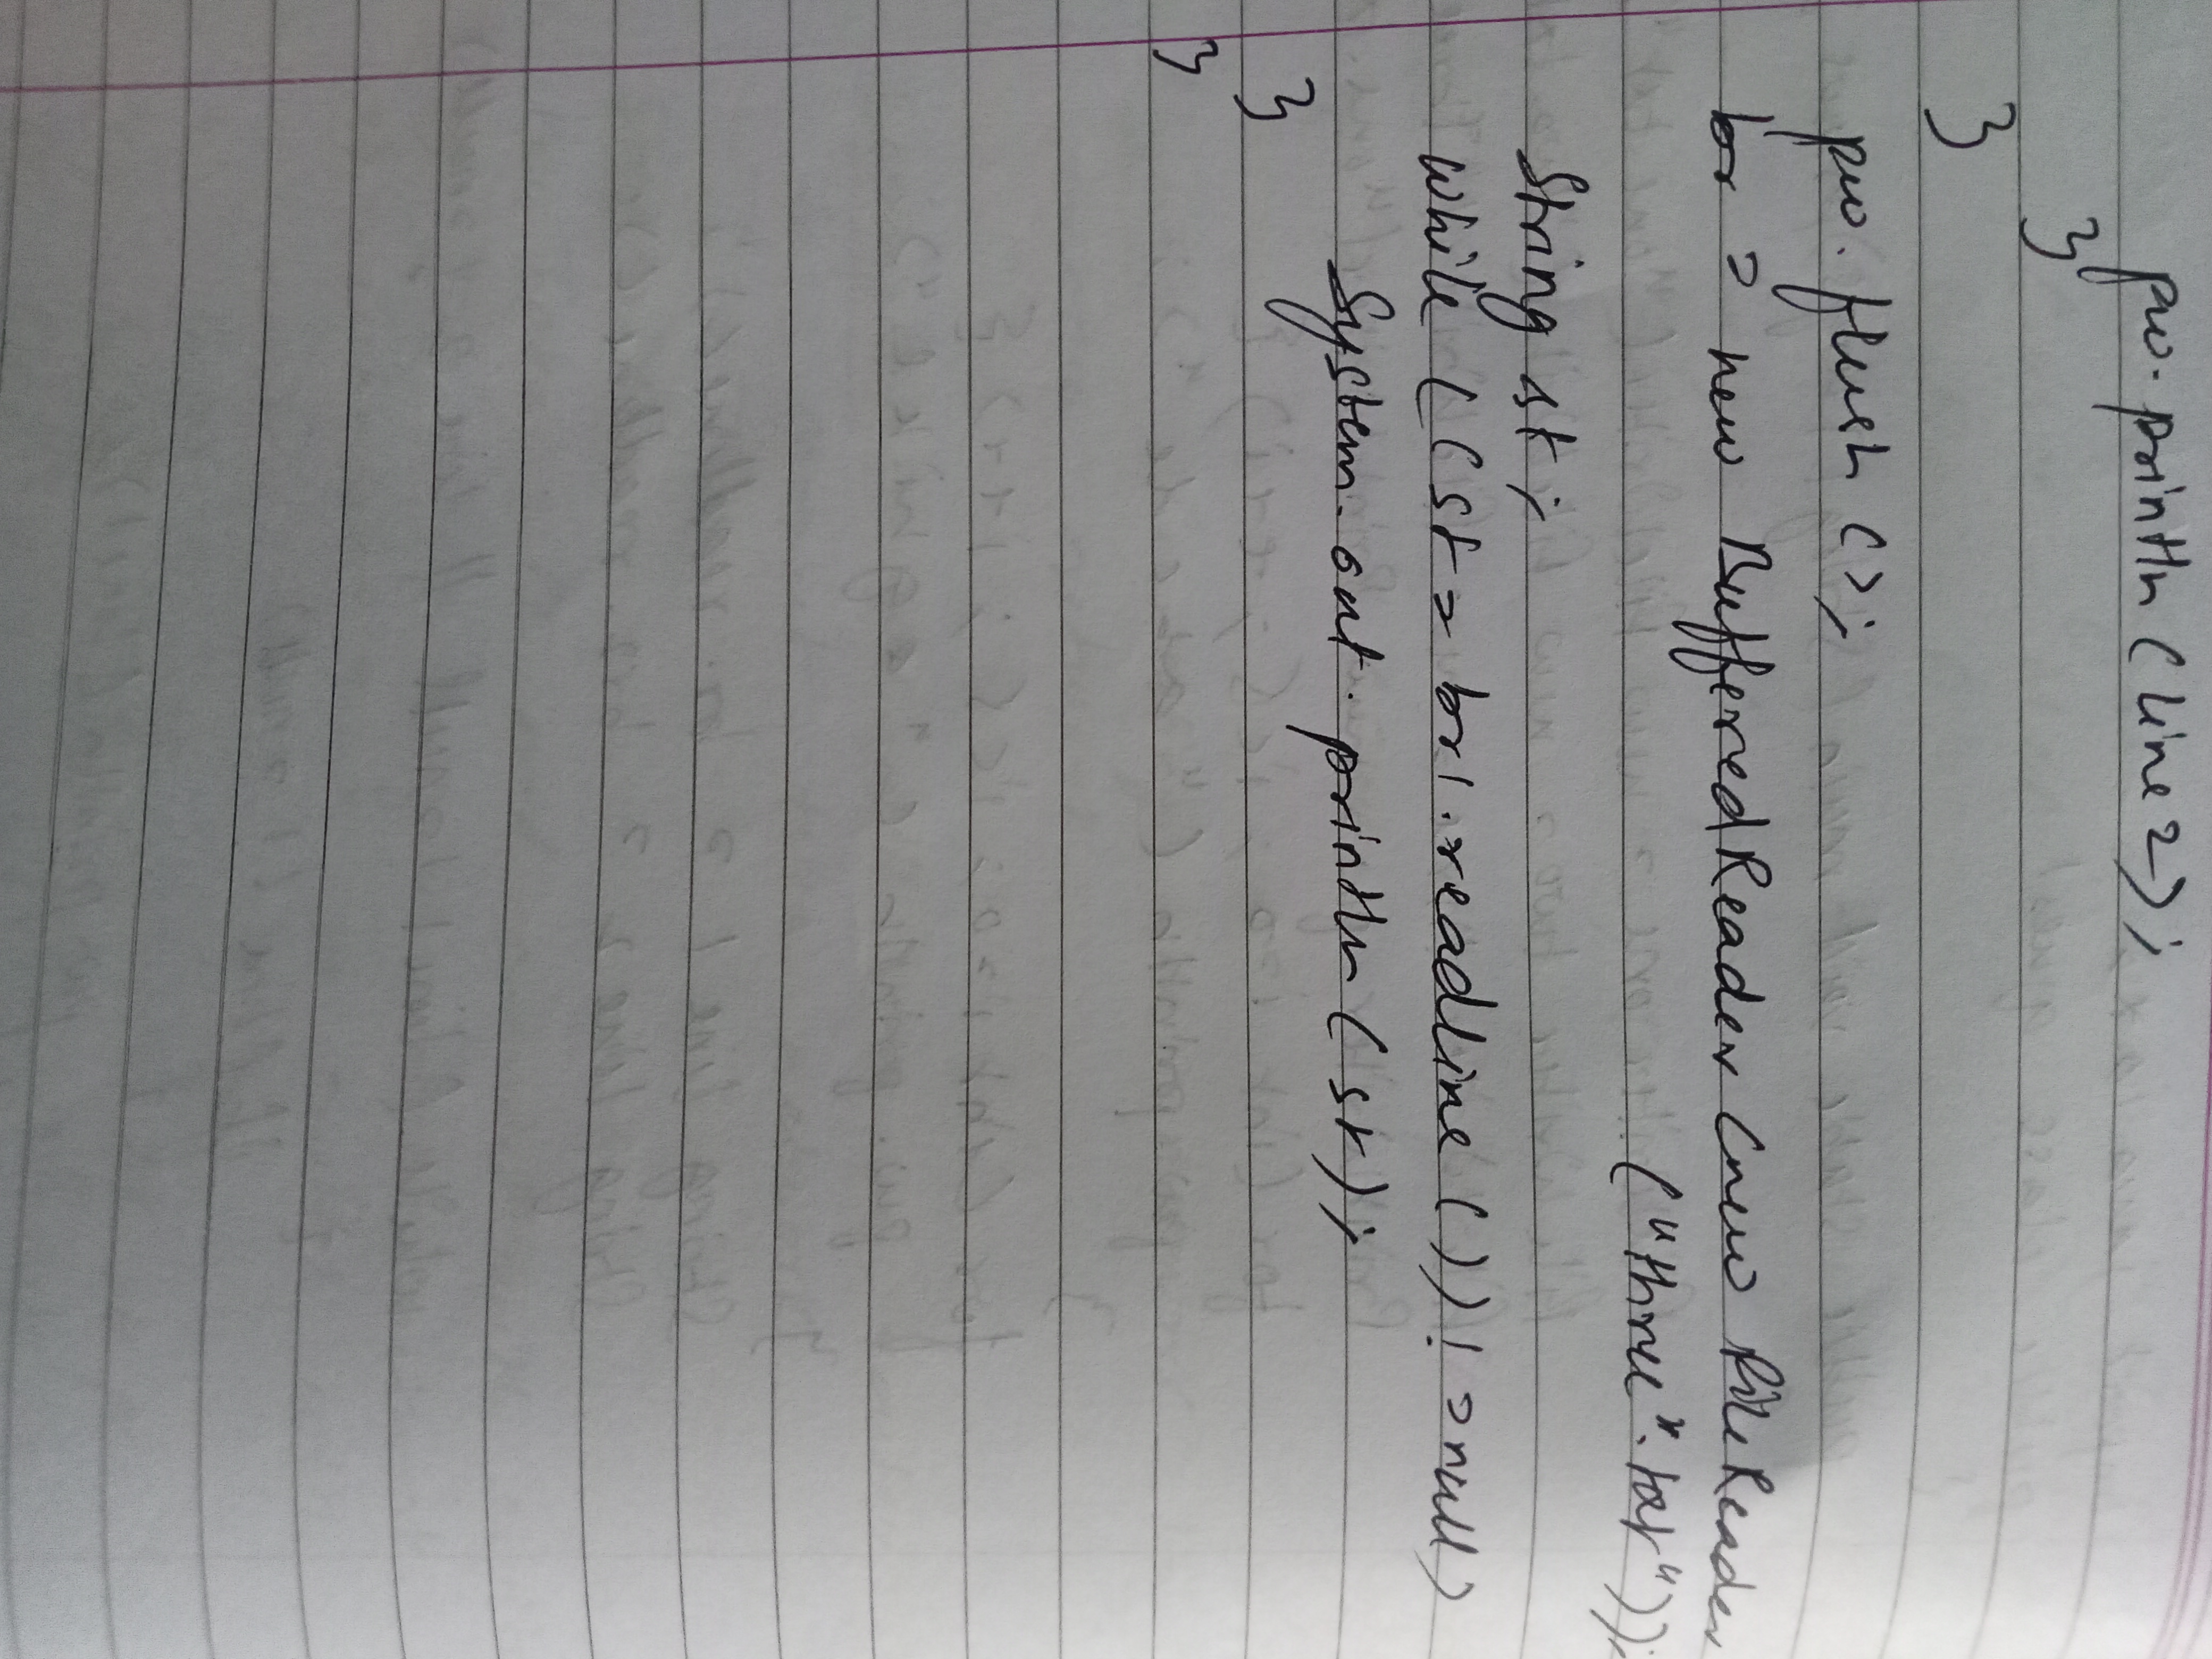 pw.println(line2);
}
}
pw.flush();
br = new BufferedReader(new FileReader
("three".txt"));
String st;
while((st = br1.readLine())!=null)
System.out.println(st);
}
}